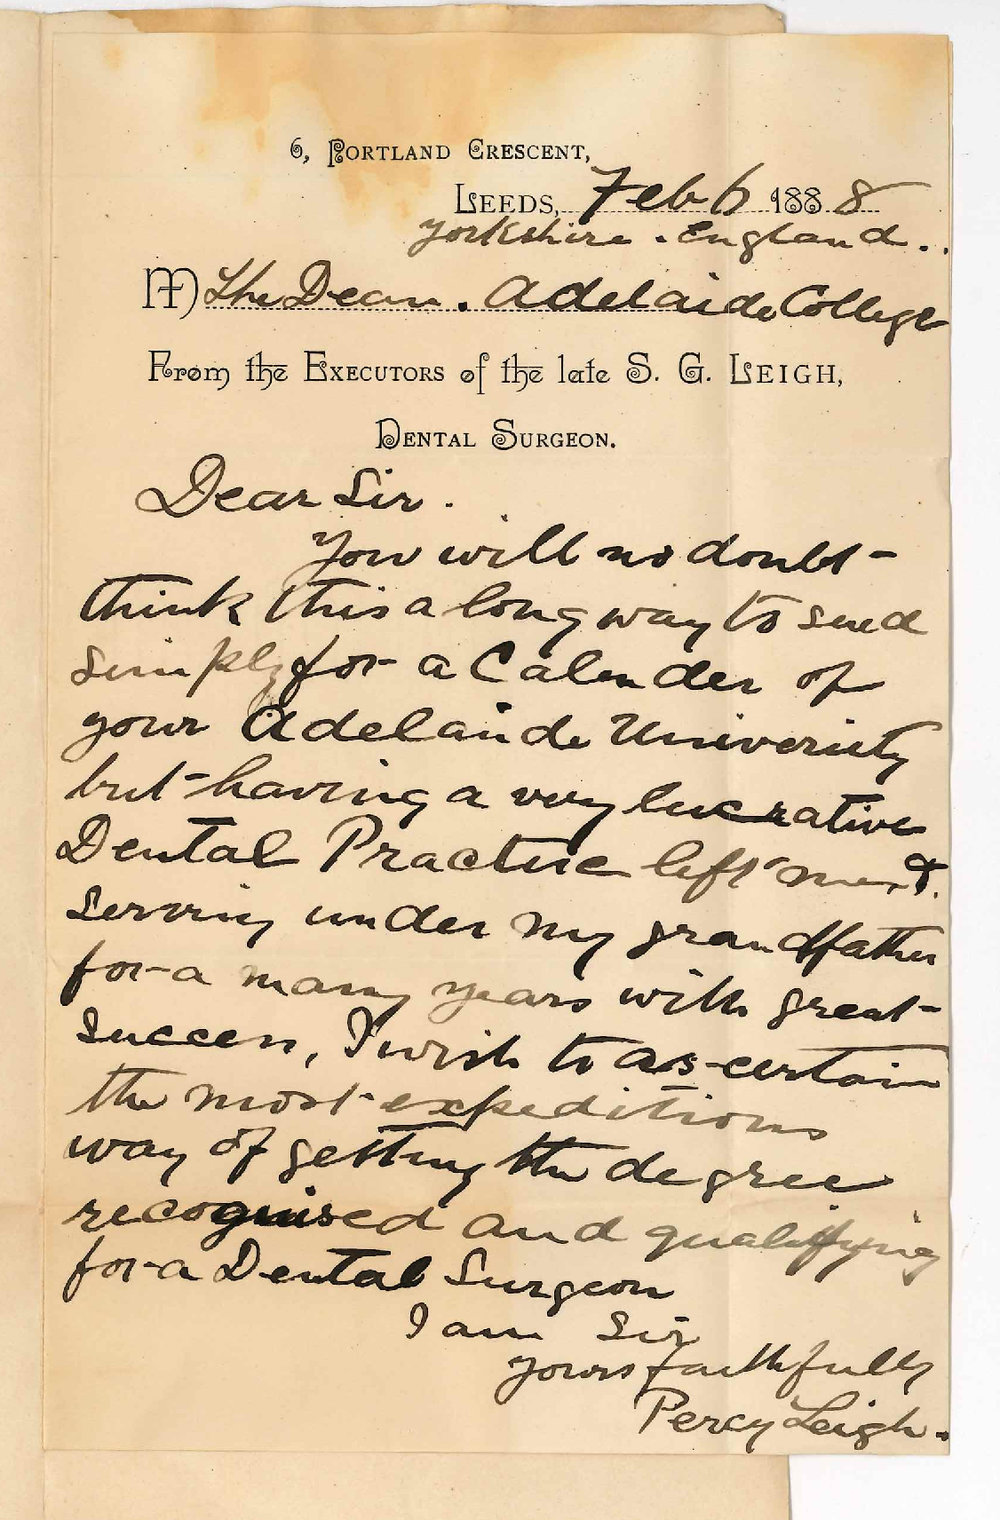 6, Portland Crescent,
Leeds, Feb 6 1888
Yorkshire . England . .
M The Dean . Adelaide College
From the Executors of the late S. G. Leigh,
Dental Surgeon.
Dear Sir .
You will no doubt
think this a long way to send
simply for a Calender of
your Adelaide University
but having a very lucrative
Dental Practise left me &
serving under my grandfather
for a many years with great
success, I wish to ascertain
the most expeditious
way of getting the degree
recognised and qualifying
for a Dental Surgeon
I am Sir
yours faithfully
Percy Leigh .